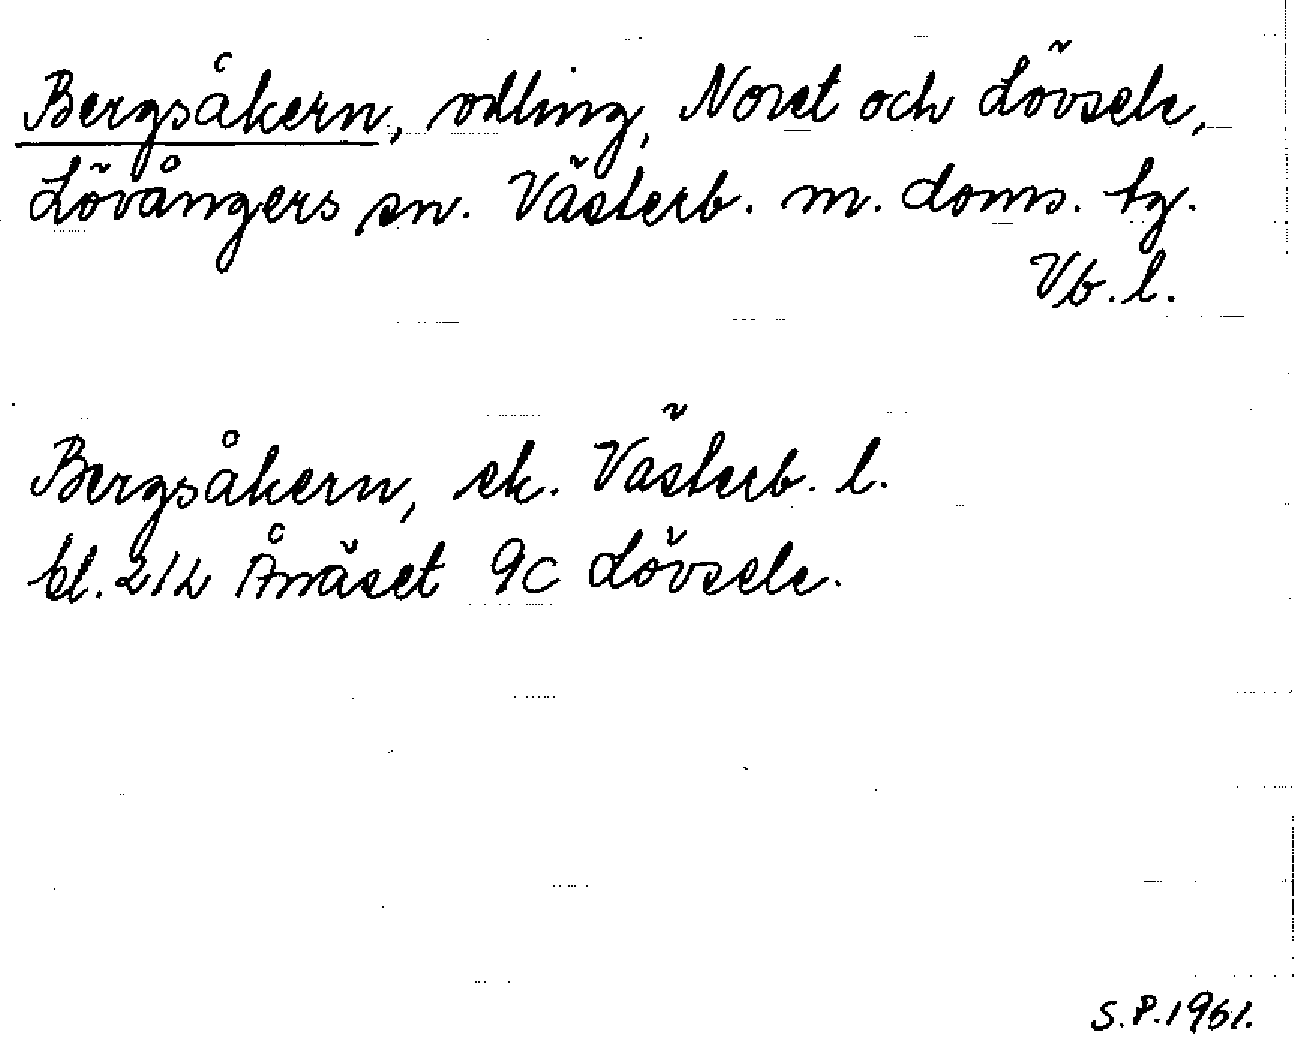 Bergsåkern, odling, Noret och Lövsele,
Lövångers sn. Västerb. m. doms. tg.
Vb. l.
Bergsåkern, ek. Västerb. l.
bl. 212 Ånäset 9c Lövsele.
S.P. 1961.